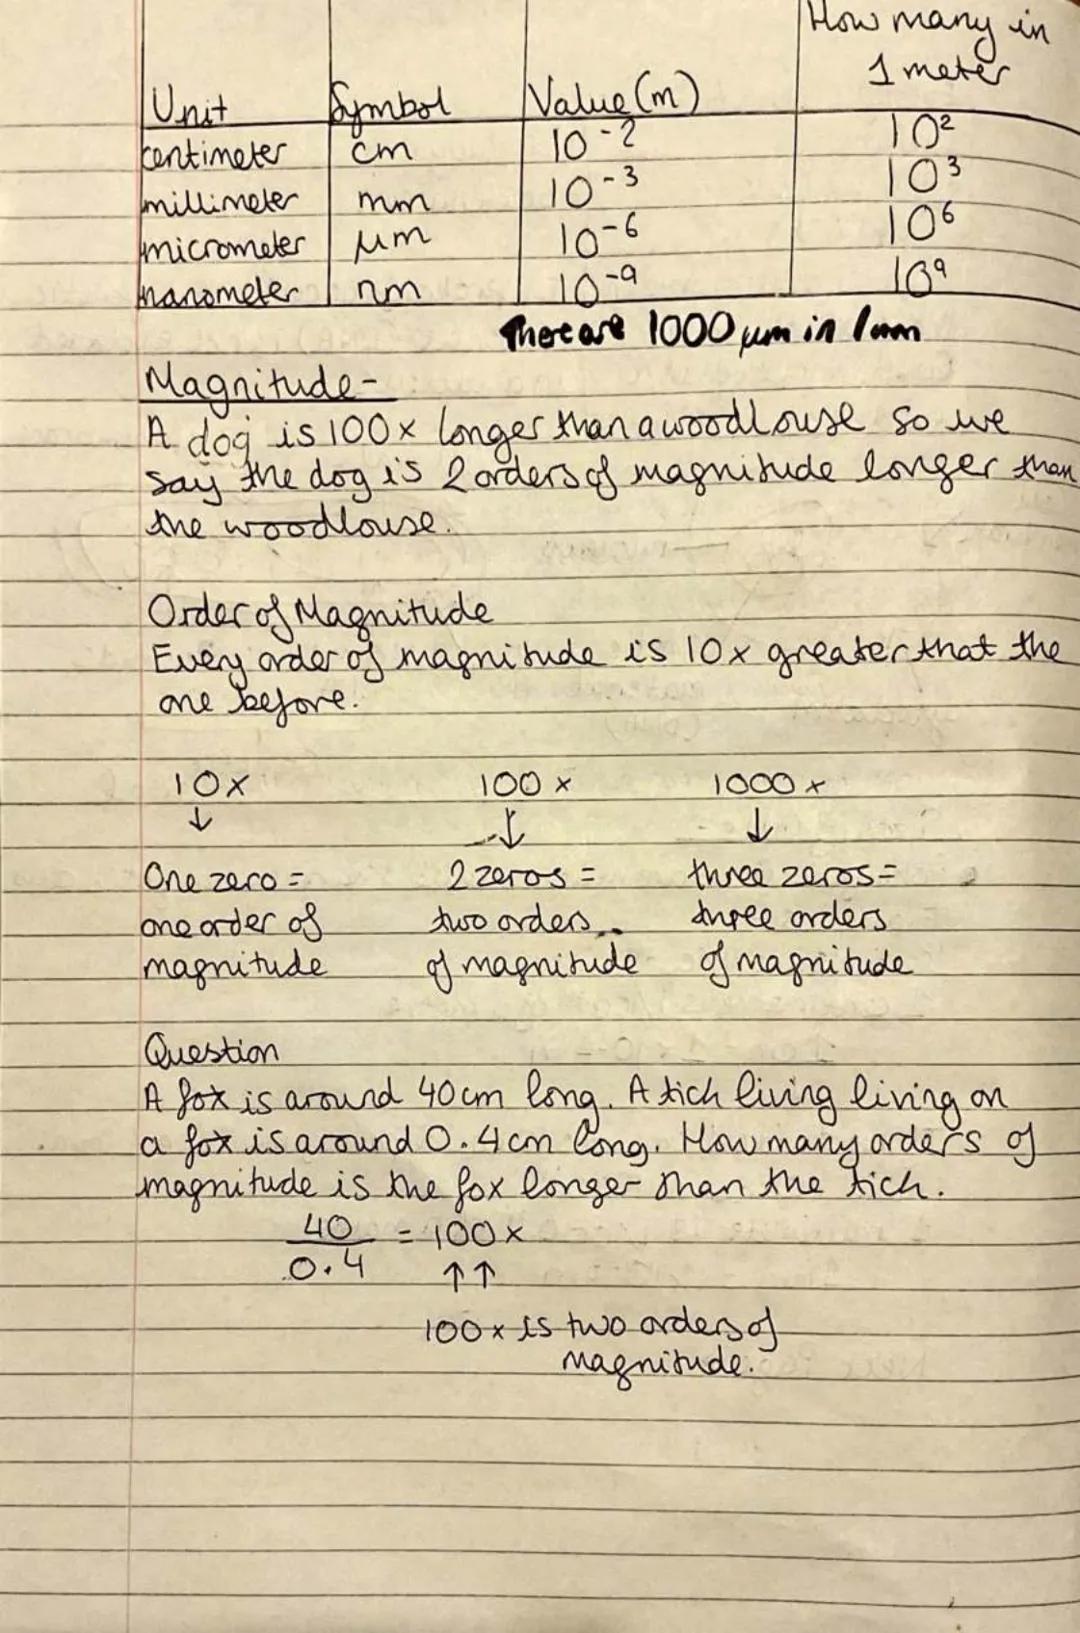 How many in
1 meter
Unit Symbol Value (m)
centimeter cm 10⁻² 10²
millimeter mm 10⁻³ 10³
micrometer μm 10⁻⁶ 10⁶
nanometer nm 10⁻⁹ 10⁹
There are 1000 μm in 1mm
Magnitude-
A dog is 100x longer than a woodlouse so we
say the dog is 2 orders of magnitude longer than
the woodlouse.
Order of Magnitude
Every order of magnitude is 10x greater that the
one before.
10x 100x 1000x
↓ ↓ ↓
One zero = 2 zeros = three zeros =
one order of two orders three orders
magnitude of magnitude of magnitude
Question
A fox is around 40cm long. A tick living living on
a fox is around 0.4cm long. How many orders of
magnitude is the fox longer than the tick.
40 = 100x
0.4 ↑↑
100x is two orders of
magnitude.